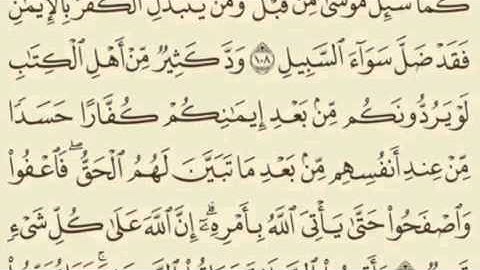 كَمَا سُئِلَ مُوسَىٰ مِن قَبْلُ وَمَن يَتَبَدَّلِ ٱلْكُفْرَ بِٱلْإِيمَٰنِ
فَقَدْ ضَلَّ سَوَآءَ ٱلسَّبِيلِ ١٠٨ وَدَّ كَثِيرٌ مِّنْ أَهْلِ ٱلْكِتَٰبِ
لَوْ يَرُدُّونَكُم مِّنۢ بَعْدِ إِيمَٰنِكُمْ كُفَّارًا حَسَدًا
مِّنْ عِندِ أَنفُسِهِم مِّنۢ بَعْدِ مَا تَبَيَّنَ لَهُمُ ٱلْحَقُّ ۖ فَٱعْفُوا۟
وَٱصْفَحُوا۟ حَتَّىٰ يَأْتِىَ ٱللَّهُ بِأَمْرِهِۦٓ ۗ إِنَّ ٱللَّهَ عَلَىٰ كُلِّ شَىْءٍ